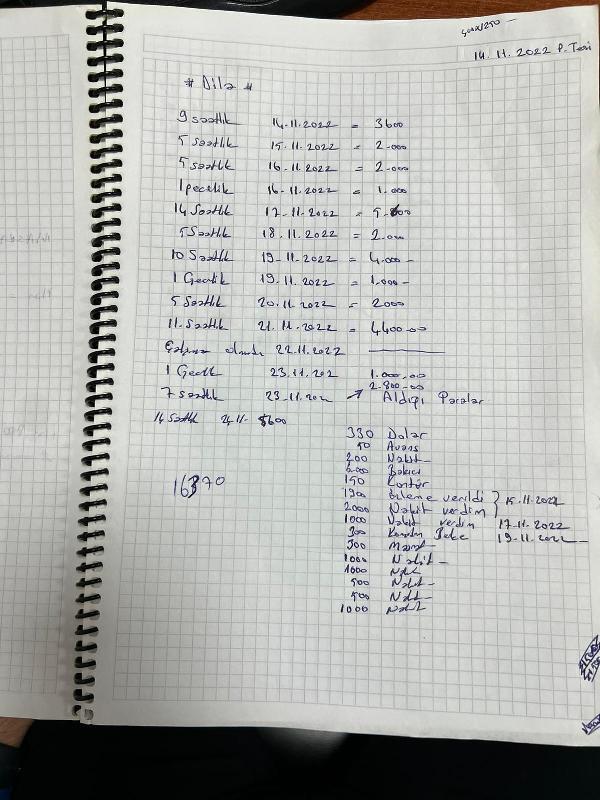 14.11.2022 P.Tesi
# Dila #
9 saatlik 14.11.2022 = 3600
5 saatlik 15.11.2022 = 2.000
5 saatlik 16.11.2022 = 2.000
1 gecelik 16-11-2022 = 1.000
14 saatlik 17-11-2022 = 5.600
5 saatlik 18.11.2022 = 2.000
10 saatlik 19-11-2022 = 4.000-
1 Gecelik 19.11.2022 = 1.000-
5 saatlik 20.11.2022 = 2000
11 saatlik 21.11.2022 = 4400.00
22.11.2022
1 Gecelik 23.11.202 1.000.00
7 saatlik 23-11-202 2.800-00
Aldığı Paralar
14 saatlik 24-11- 5600
330 Dolar
50 Avans
200 Nakit
Bakıcı
150 Kontör
1900 verildi
2000 Nakit verdim } 15.11.2022
1000 Nakit verdim 17-11-2022
300 19-11-2022
16370
300
1000 Nakit
1000 Nakit
500 Nakit
500 Nakit
1000 Nakit